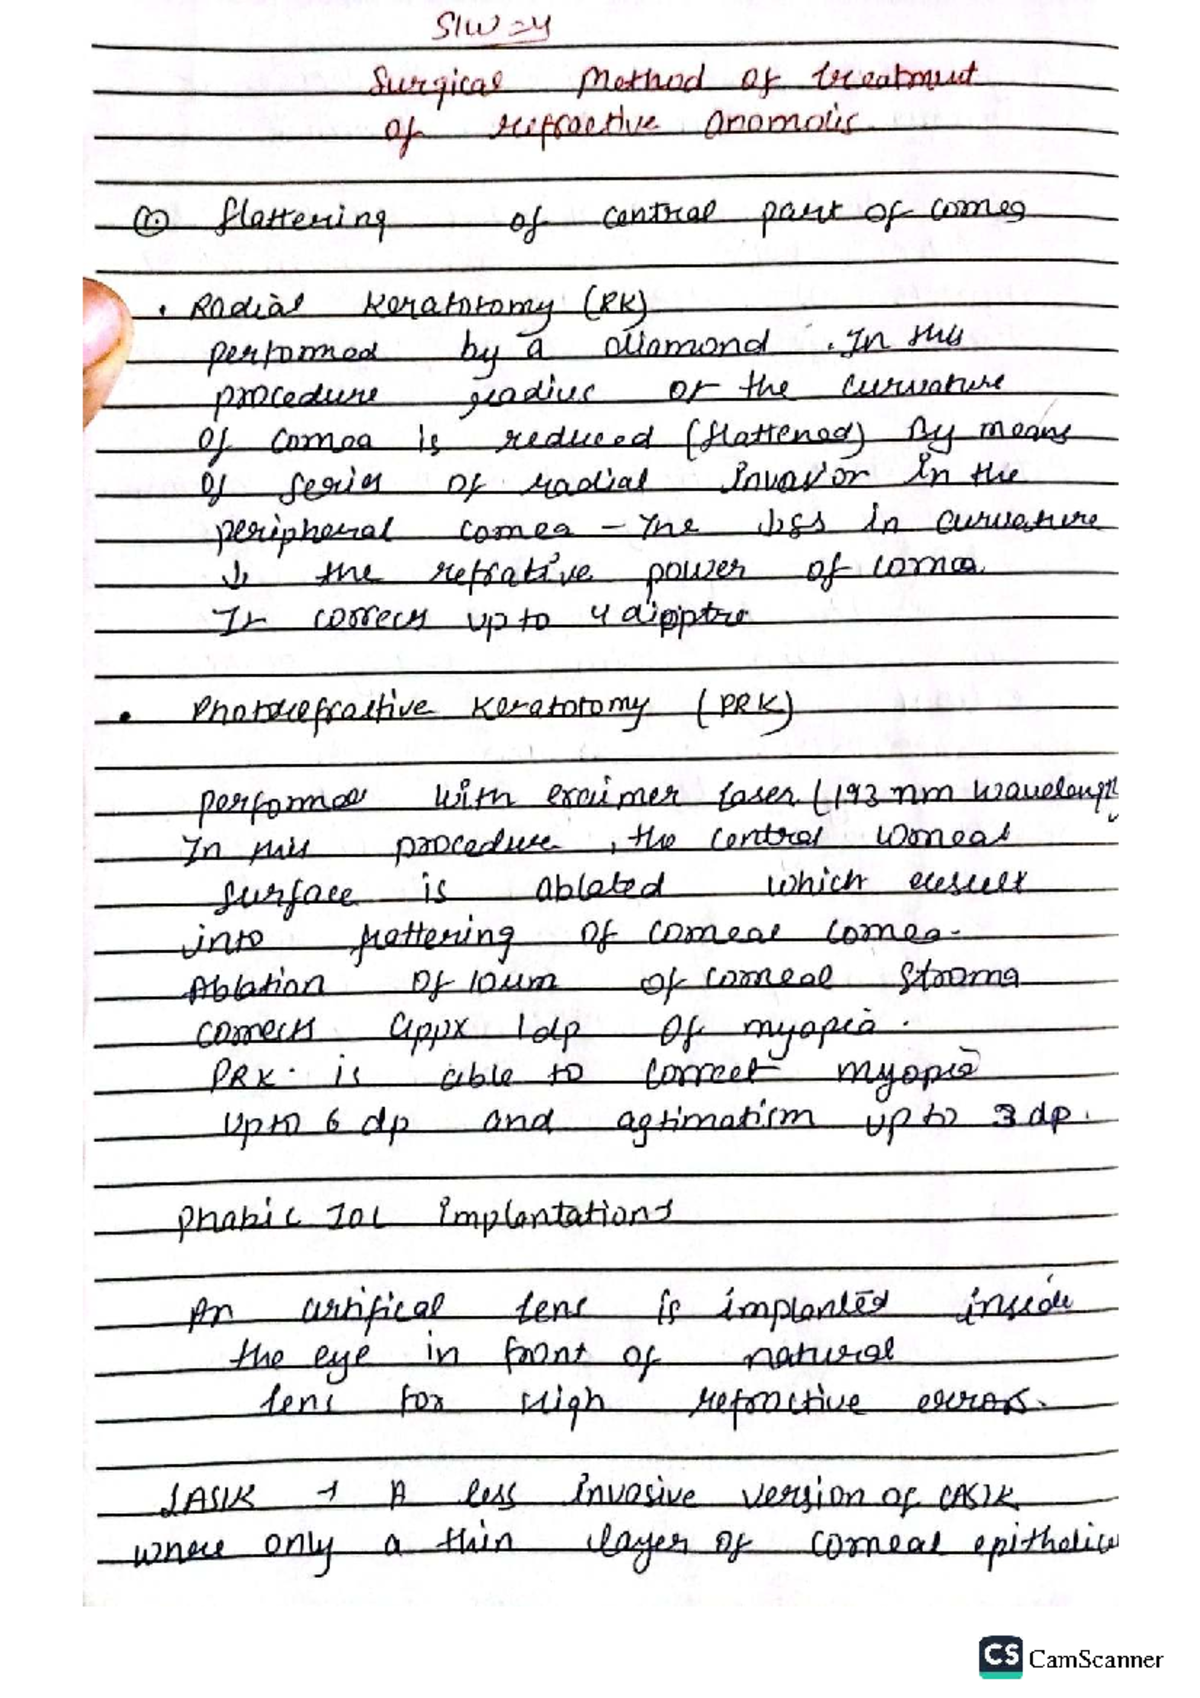 SIW = 4
Surgical Method of treatment
of refractive anomolis
① flattering of central part of cornea
• Radial Keratotomy (RK)
performed by a diamond . In this
procedure radius of the curvature
of cornea is reduced (flattened) By means
of series of radial Invasion in the
peripheral cornea – The in curvature
↓ the refrative power of cornea
It corrects up to 4 dipptre
• Photorefractive Keratotomy (PRK)
performed with excimer laser (193 nm wavelength
In this procedure , the central corneal
surface is ablated which result
into flattering of corneal cornea.
Ablation of 10um of corneal Strooma
corrects appx 1dp of myopia .
PRK. is able to correct myopia
upto 6 dp and agtimatism up to 3 dp.
Phakic IOL Implantations
An artifical lens is implanted inside
the eye in front of natural
lens for High refractive errors.
LASIK → A less invasive version of LASIK
where only a thin layer of corneal
CS CamScanner